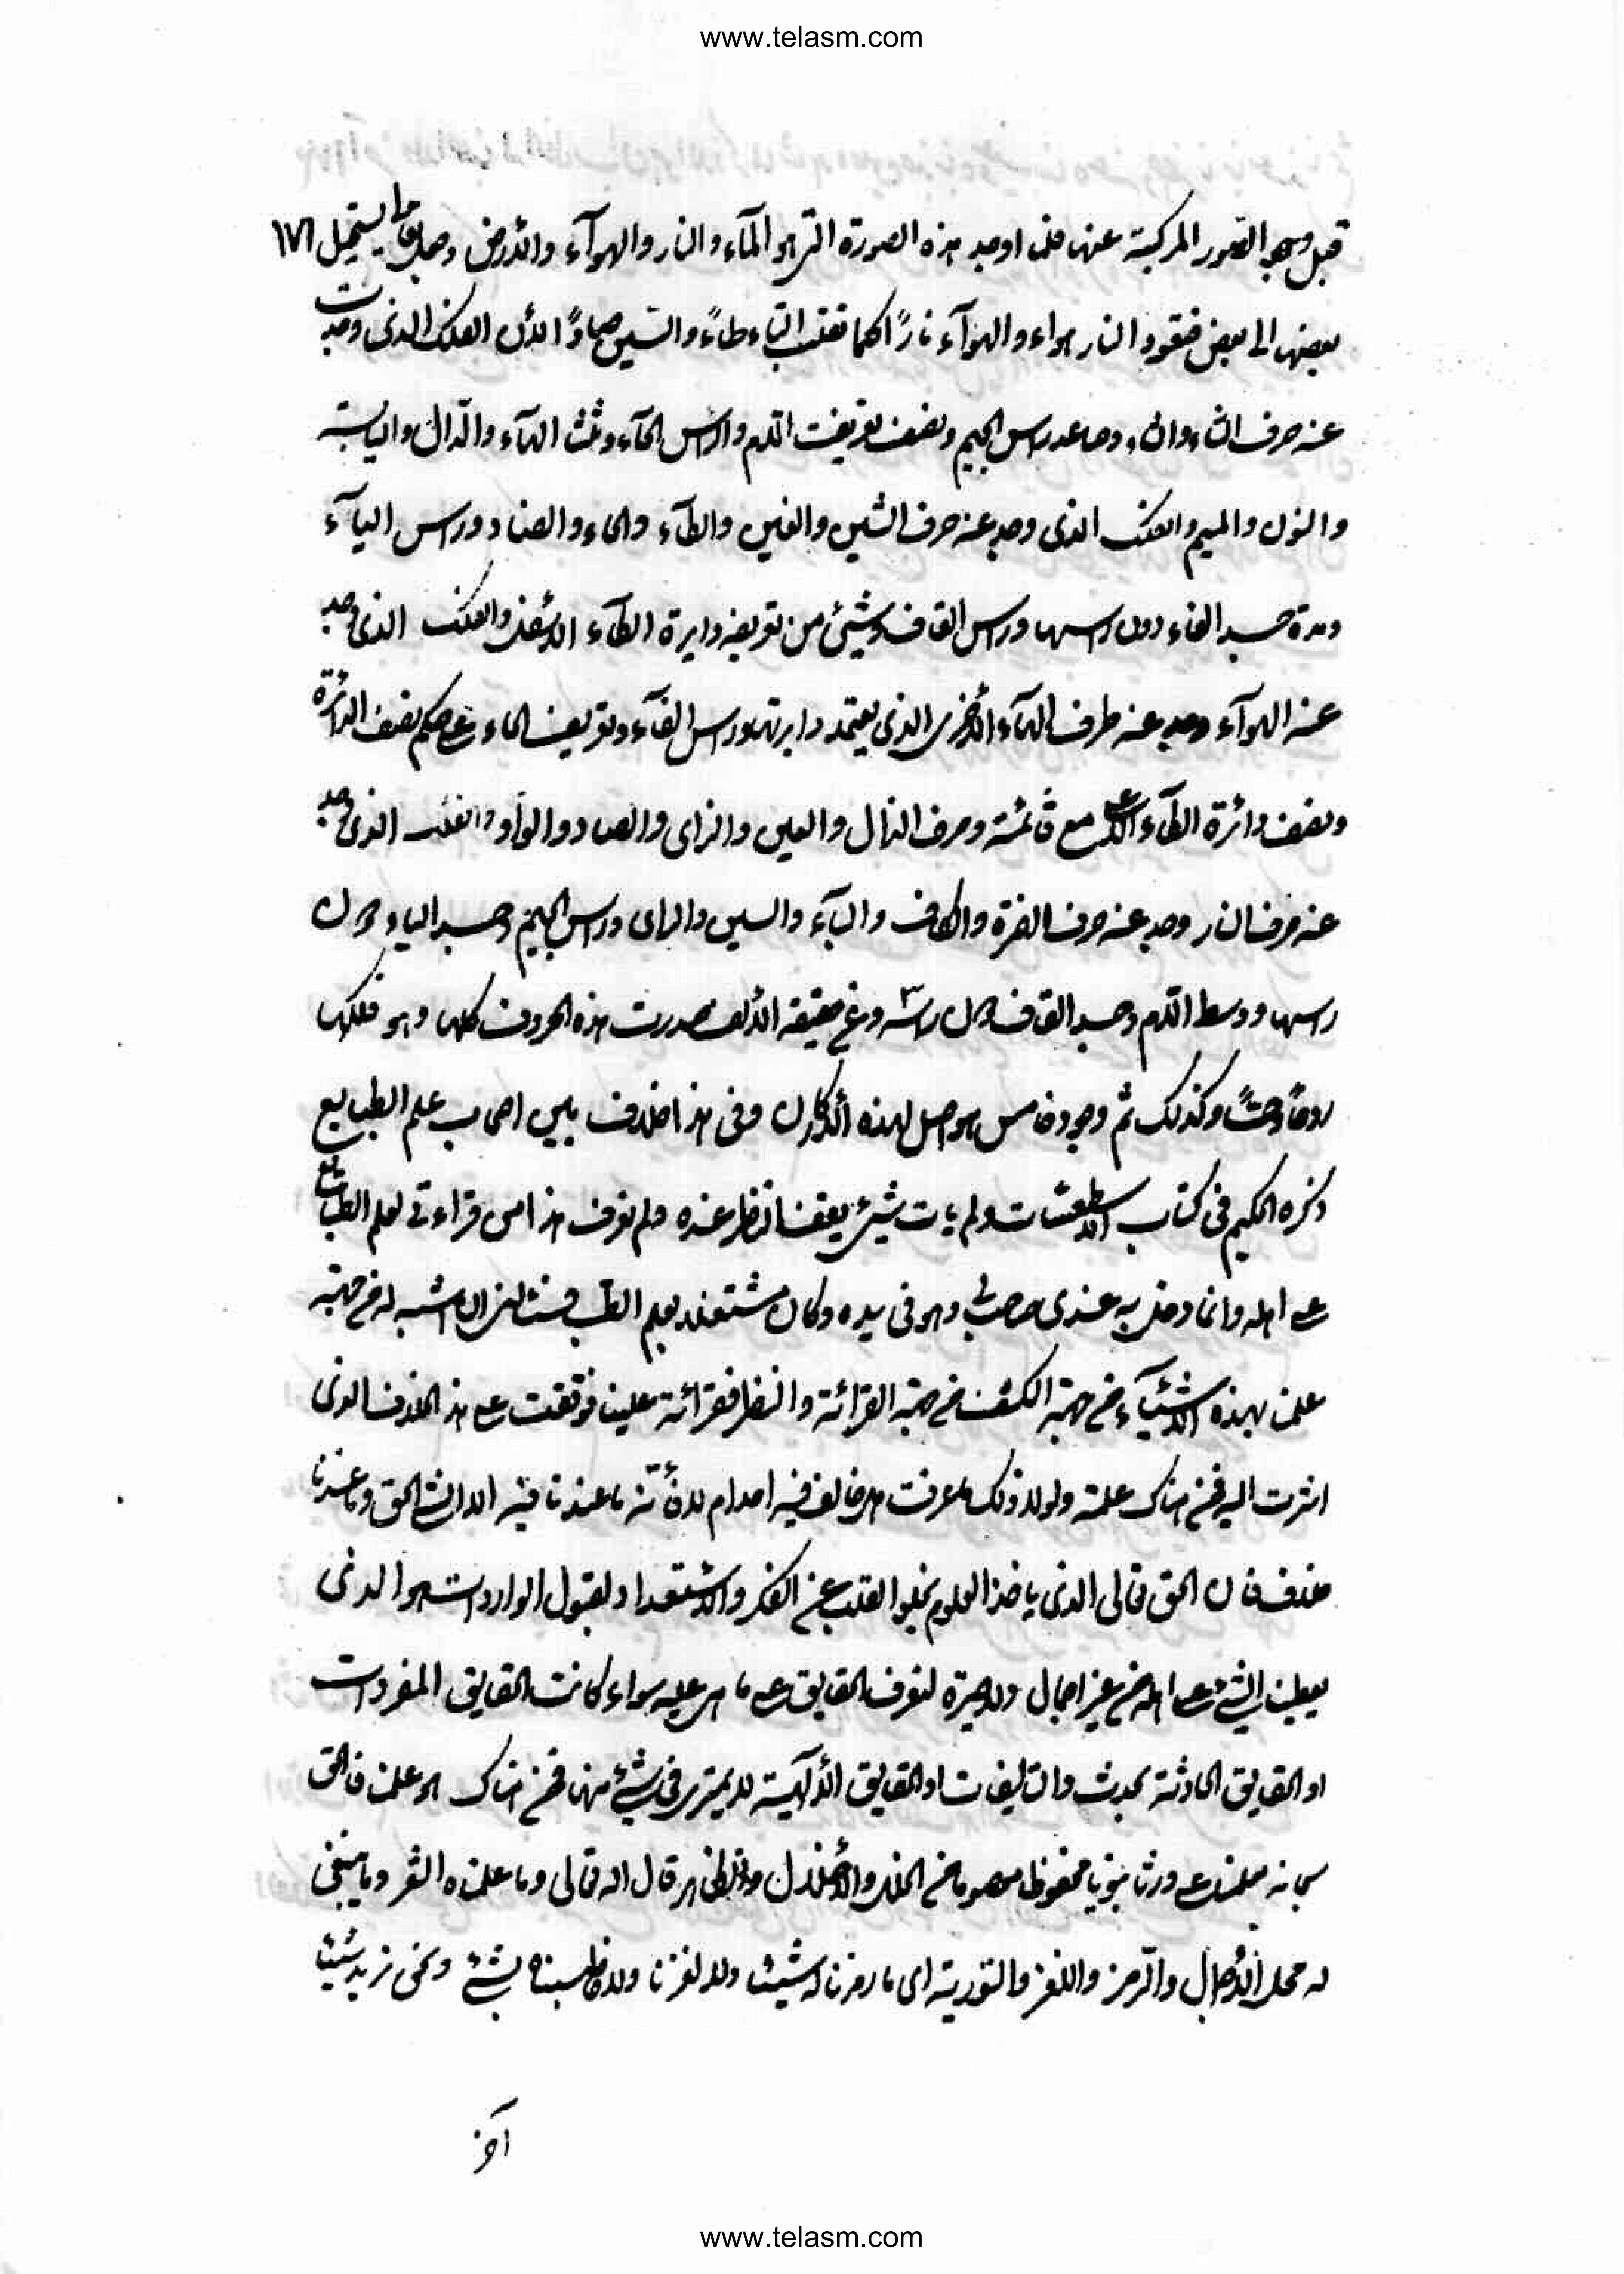 www.telasm.com
قبل وجود الصور المركبة عنها فلما اوجد هذه الصورة التى هو المآء والنار والهوآء والأرض وجعلها يستحيل ١٧١
بعضها الى بعض فتعود النار هواء والهوآء نارًا كما تقلب التاء طاءً والسين صادًا لأن الفلك الذى وجدت
عنه حرف الثاء والتاء وما عدا راس الجيم ونصف تعريفت اللام وراس الخآء وثلث الهآء والدال واليابسة
والنون والميم والفلك الذى وجد عنه حرف الشين والغين والطآء والحاء والضاد وراس اليآء
ومدة جسد الفاء دون راسها وراس القاف وشيئ من تعريفه ودايرة الظآء الأسفل والفلك الذى وجد
عنه الهوآء وجد عنه طرف الهآء الأخرى الذى يعقد دايرتها وراس الفآء وتعريف الخاء على حكم نصف الدائرة
ونصف دائرة الظآء الأعلى مع قائمته وحرف الذال والعين والزاى والصاد والوآو والفلك الذى وجد
عنه حرف النار وجد عنه حرف الهمزة والكاف والبآء والسين والراى وراس الجيم وجسد الياء دون
راسها ووسط اللام وجسد القاف دون راسه وعن حقيقة الألف صدرت هذه الحروف كلها وهو فلكها
روحًا وحسًا وكذلك ثم وجود خامس هو اصل لهذه الأركان وفى هذا خلاف بين اصحاب علم الطبايع
ذكره الحكيم فى كتاب الاسطقسات ولم يات بشيئ يقف الناظر عنده ولم نعرف هذا من قراءتى لعلم الطبائع
على اهله وانما دخل به عندى صاحب لى وهو فى يده وكان مشتغلا بعلم الطب فسئالنى ان امشيه له من جهة
علمنا بهذه الأشيآء من جهة الكشف لا من جهة القرائة والنظر فقرائه علينا فوقفت على هذا الخلاف الذى
اشرت اليه فمن هناك علمته ولولا ذلك ما عرفت هل خالف فيه احد ام لا فأنّه ما عندنا فيه الا الشئ الحق وما عندنا
خلاف فان الحق تعالى الذى ياخذ العلوم بخلو القلب عن الفكر والأستعداد لقبول الواردات هو الذى
يعطينا الشئ على اصله من غير اجمال ولا حيرة لنعرف الحقايق على ما هى عليه سواء كانت الحقايق المفردات
او الحقايق الحادثة بحدوث والتاليفات او الحقايق الألهية لا يمترى فى شيئ منها فمن هناك هو علمنا فالحق
سبحانه معلمنا على ورثا نبويا محفوظا معصوما من الخلل والأجلال والظاهر قال الله تعالى وما علمناه الشعر وما ينبغى
له محل الأجمال والرمز واللغز والتورية اى ما رمزنا له شيئا ولا لغزنا ولا خاطبناه بشئ ونحن نريد شيئا
آخر
www.telasm.com